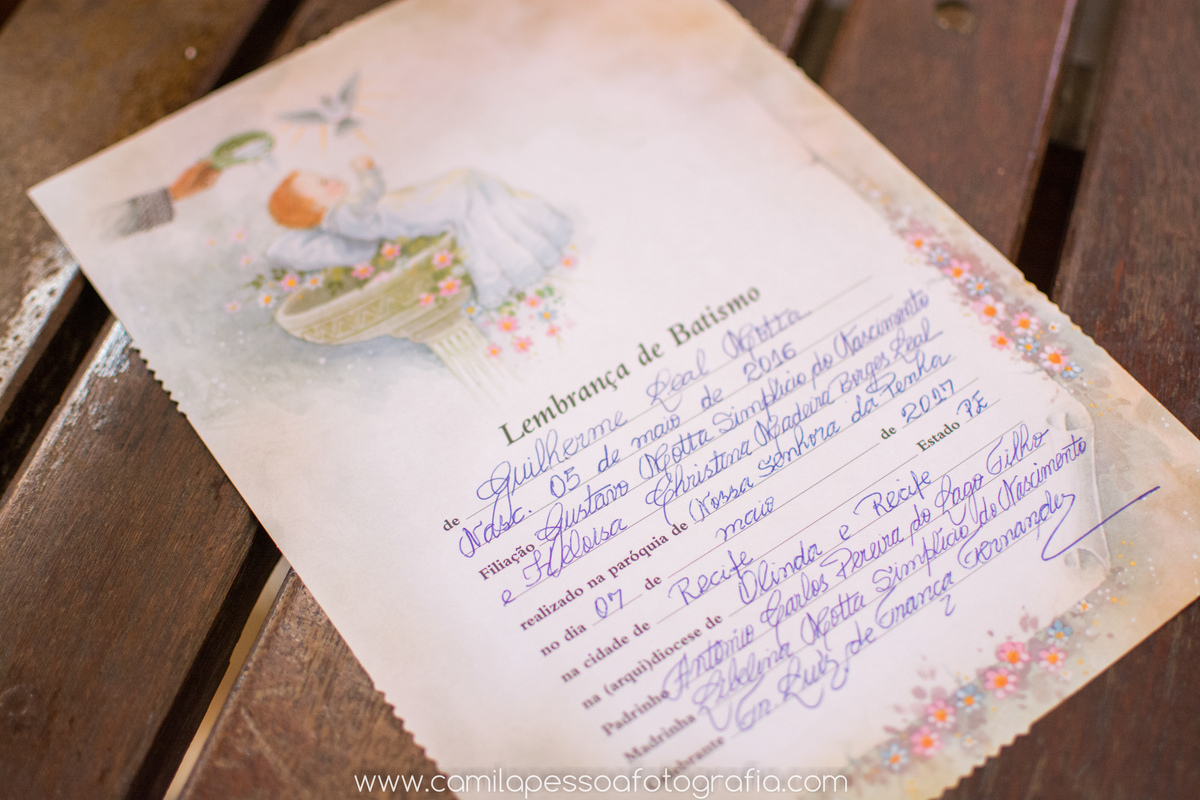 Lembrança de Batismo
de Guilherme Leal Motta
Nasc. 05 de maio de 2016
Filiação Gustavo Motta Simplício do Nascimento
e Heloisa Christina Madeira Borges Leal
realizado na paróquia de Nossa Senhora da Penha
no dia 07 de maio de 2017
na cidade de Recife Estado PE
na (arqui)diocese de Olinda e Recife
Padrinho Antônio Carlos Pereira do Lago Filho
Madrinha Sibelina Motta Simplício do Nascimento
Luiz de França Fernandes
www.camilapessoafotografia.com